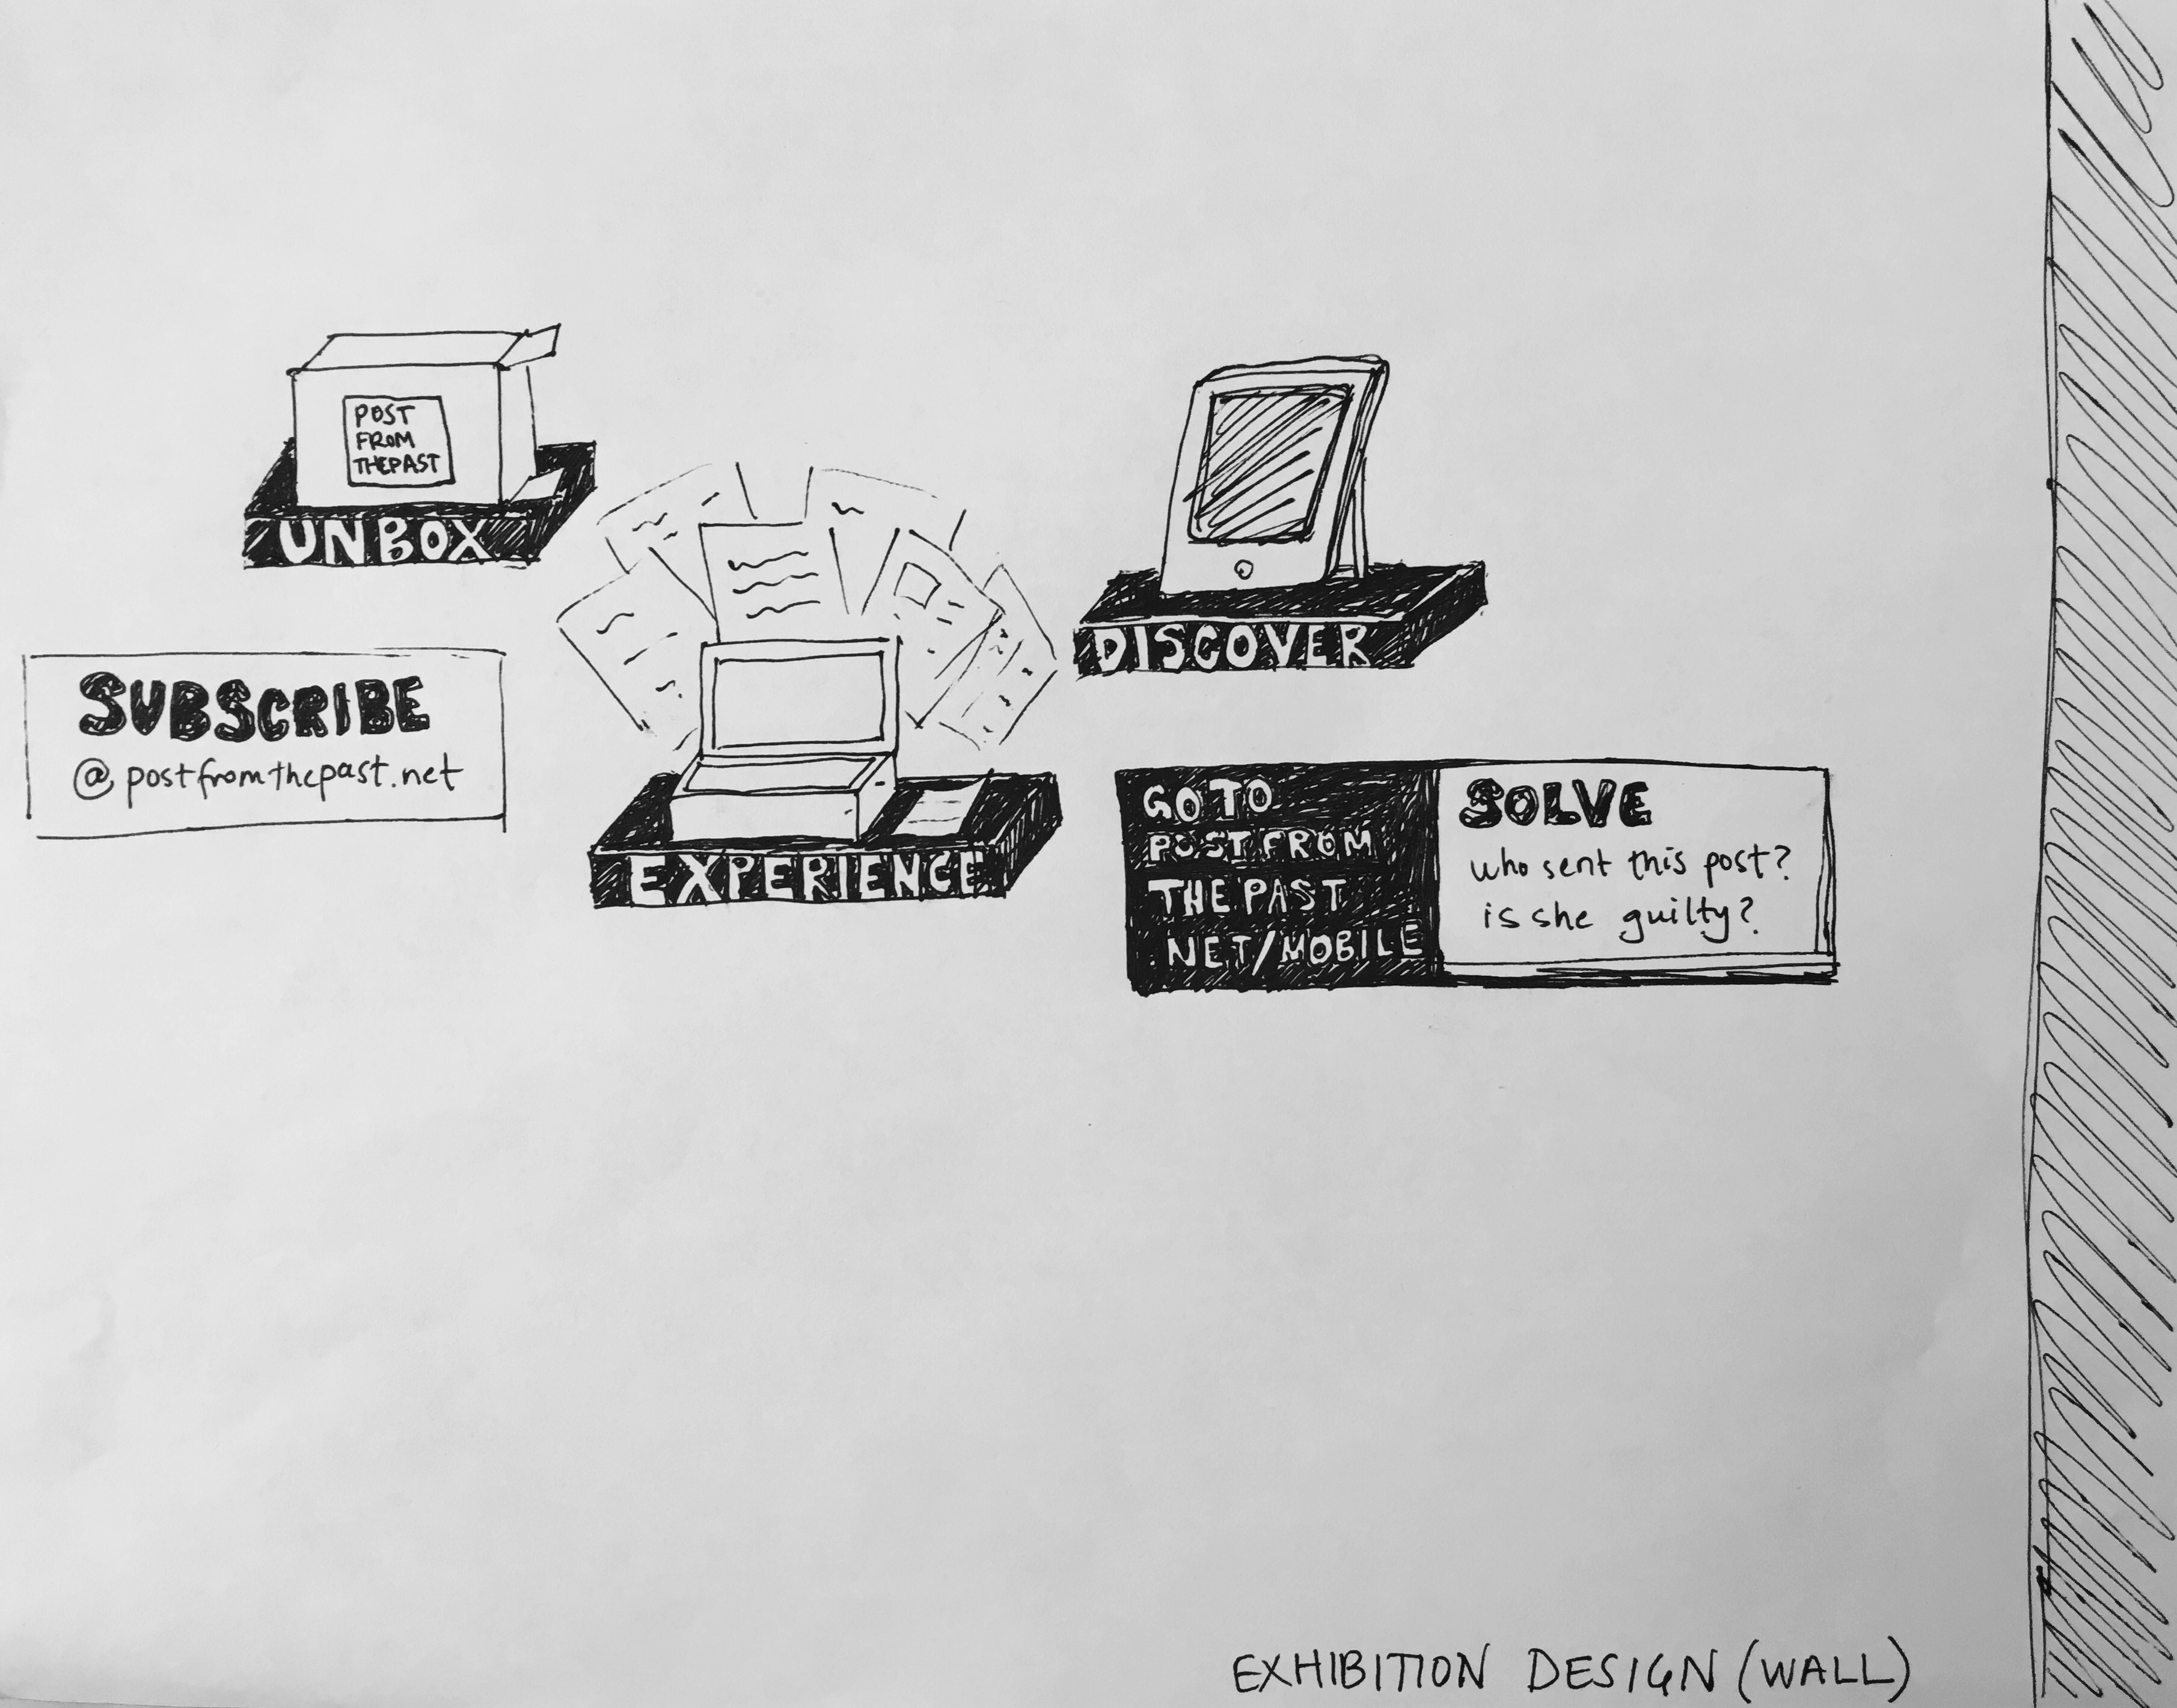 POST
FROM
THEPAST
UNBOX
SUBSCRIBE
@postfromthepast.net
EXPERIENCE
DISCOVER
GO TO
POST FROM
THE PAST
NET/MOBILE
SOLVE
who sent this post?
is she guilty?
EXHIBITION DESIGN (WALL)